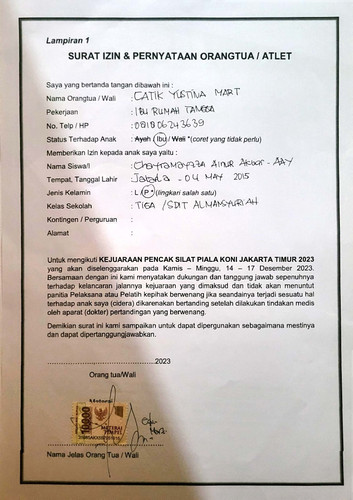 Lampiran 1
SURAT IZIN & PERNYATAAN ORANGTUA / ATLET
Saya yang bertanda tangan dibawah ini :
Nama Orangtua / Wali : CATIK YUSTINA MART
Pekerjaan : IBU RUMAH TANGGA
No. Telp / HP : 081806243639
Status Terhadap Anak : Ayah / Ibu / Wali *(coret yang tidak perlu)
Memberikan Izin kepada anak saya yaitu :
Nama Siswa/i :
Tempat, Tanggal Lahir : Jakarta - 04 MAY 2015
Jenis Kelamin : L / P *(lingkari salah satu)
Kelas Sekolah : TIGA / SDIT ALMANSYURIAH
Kontingen / Perguruan :
Alamat :
Untuk mengikuti KEJUARAAN PENCAK SILAT PIALA KONI JAKARTA TIMUR 2023
yang akan diselenggarakan pada Kamis – Minggu, 14 – 17 Desember 2023.
Bersamaan dengan ini kami menyatakan dukungan dan tanggung jawab sepenuhnya
terhadap kelancaran jalannya kejuaraan yang dimaksud dan tidak akan menuntut
panitia Pelaksana atau Pelatih kepihak berwenang jika seandainya terjadi sesuatu hal
terhadap anak saya (cidera) dikarenakan bertanding setelah dilakukan tindakan medis
oleh aparat (dokter) pertandingan yang berwenang.
Demikian surat ini kami sampaikan untuk dapat dipergunakan sebagaimana mestinya
dan dapat dipertanggungjawabkan.
........................................2023
Orang tua/Wali
10000
METERAI
TEMPEL
Nama Jelas Orang Tua / Wali